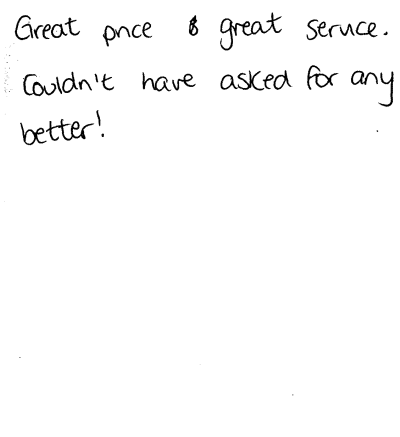 Great price & great service.
Couldn't have asked for any
better!